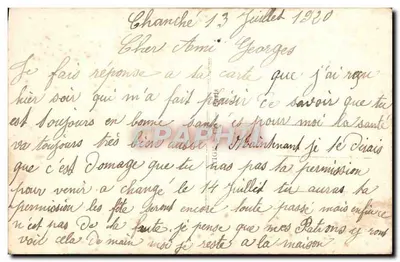 Changé 13 Juillet 1920
Cher Ami Georges
Je fais réponse a ta carte que j'ai reçu
hier soir qui m'a fait plaisir de savoir que tu
est toujours en bonne santé et pour moi la santé
va toujours très bien aussi Maintenant je te dirais
que c'est domage que tu nas pas ta permission
pour venir a change le 14 juillet tu auras ta
permission les fête seront encore toute passé mais enfin ce
n'est pas de ta faute je pense que mes Patrons y vont
voir cela demain moi je reste a la maison